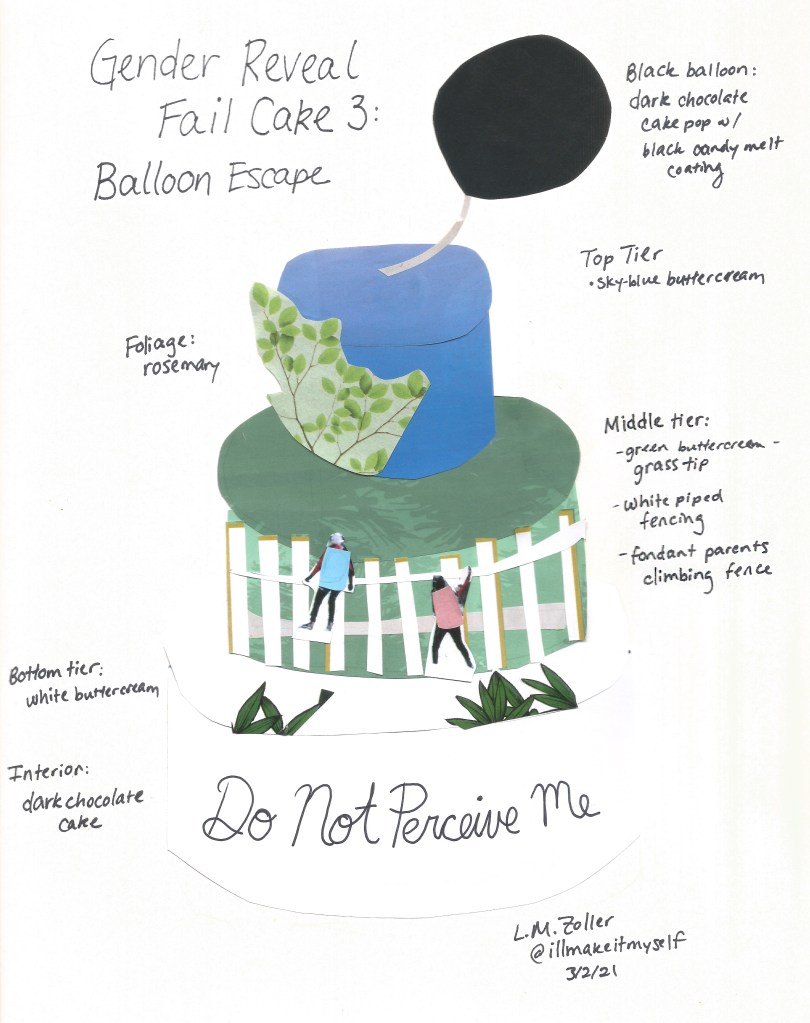 Gender Reveal
Fail Cake 3:
Balloon Escape
Black balloon:
dark chocolate
cake pop w/
black candy melt
coating
Top Tier
• sky-blue buttercream
Foliage:
rosemary
Middle tier:
- green buttercream -
grass tip
- white piped
fencing
- fondant parents
climbing fence
Bottom tier:
white buttercream
Interior:
dark chocolate
cake
Do Not Perceive Me
L.M. Zoller
@illmakeitmyself
3/2/21